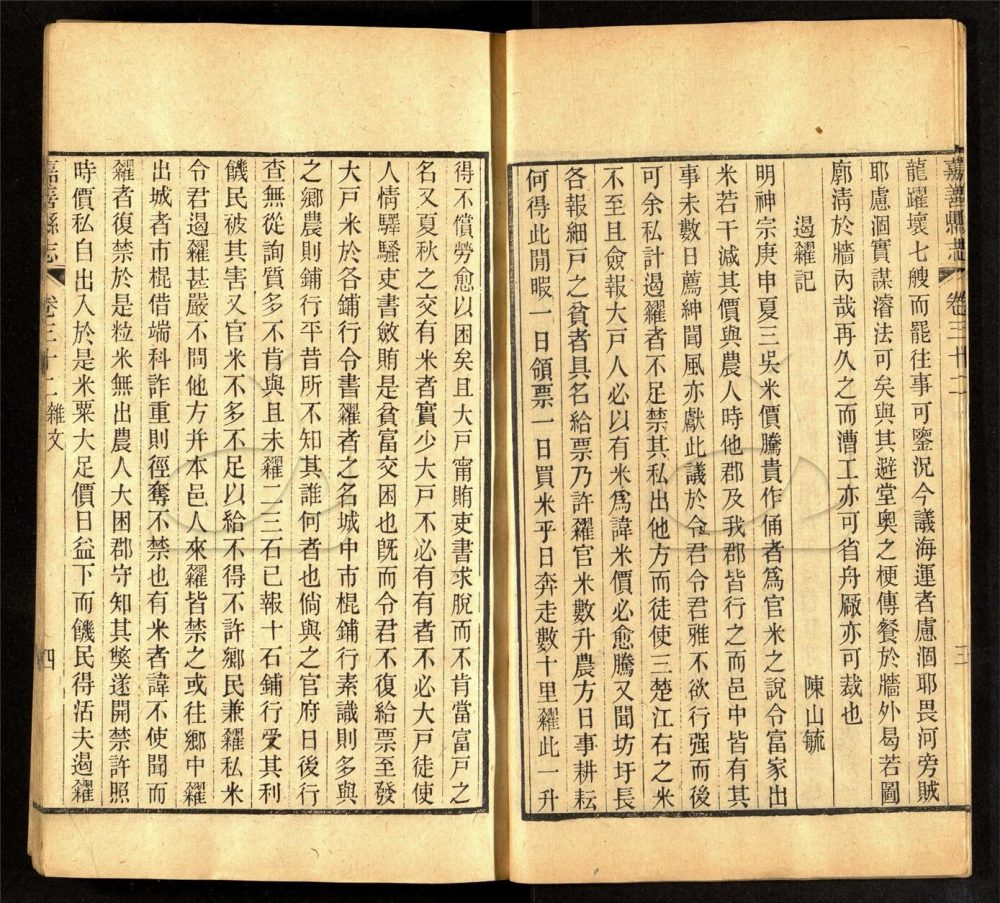 嘉善縣志 卷三十二 三
龍躍壞七艘而罷往事可鑒況今議海運者慮涸耶畏河旁賊
耶慮涸實謀濬法可矣與其避堂奧之梗傳餐於牆外曷若圖
廓清於牆內哉再久之而漕工亦可省舟厰亦可裁也
遏糴記 陳山毓
明神宗庚申夏三吳米價騰貴作俑者爲官米之說令富家出
米若干減其價與農人時他郡及我郡皆行之而邑中皆有其
事未數日薦紳聞風亦獻此議於令君令君雅不欲行强而後
可余私計遏糴者不足禁其私出他方而徒使三楚江右之米
不至且僉報大戸人必以有米爲諱米價必愈騰又聞坊圩長
各報細戸之貧者具名給票乃許糴官米數升農方日事耕耘
何得此閒暇一日領票一日買米乎日奔走數十里糴此一升
得不償勞愈以困矣且大戸甯賄吏書求脫而不肯當富戸之
名又夏秋之交有米者實少大戸不必有有者不必大戸徒使
人情驛騷吏書斂賄是貧富交困也旣而令君不復給票至發
大戸米於各鋪行令書糴者之名城中市棍鋪行素識則多與
之鄉農則鋪行平昔所不知其誰何者也倘與之官府日後行
查無從詢質多不肯與且未糴一二三石已報十石鋪行受其利
饑民被其害又官米不多不足以給不得不許鄉民兼糴私米
令君遏糴甚嚴不問他方并本邑人來糴皆禁之或往鄉中糴
出城者市棍借端科詐重則徑奪不禁也有米者諱不使聞而
糴者復禁於是粒米無出農人大困郡守知其獘遂開禁許照
時價私自出入於是米粟大足價日益下而饑民得活夫遏糴
嘉善縣志 卷三十二 雜文 四